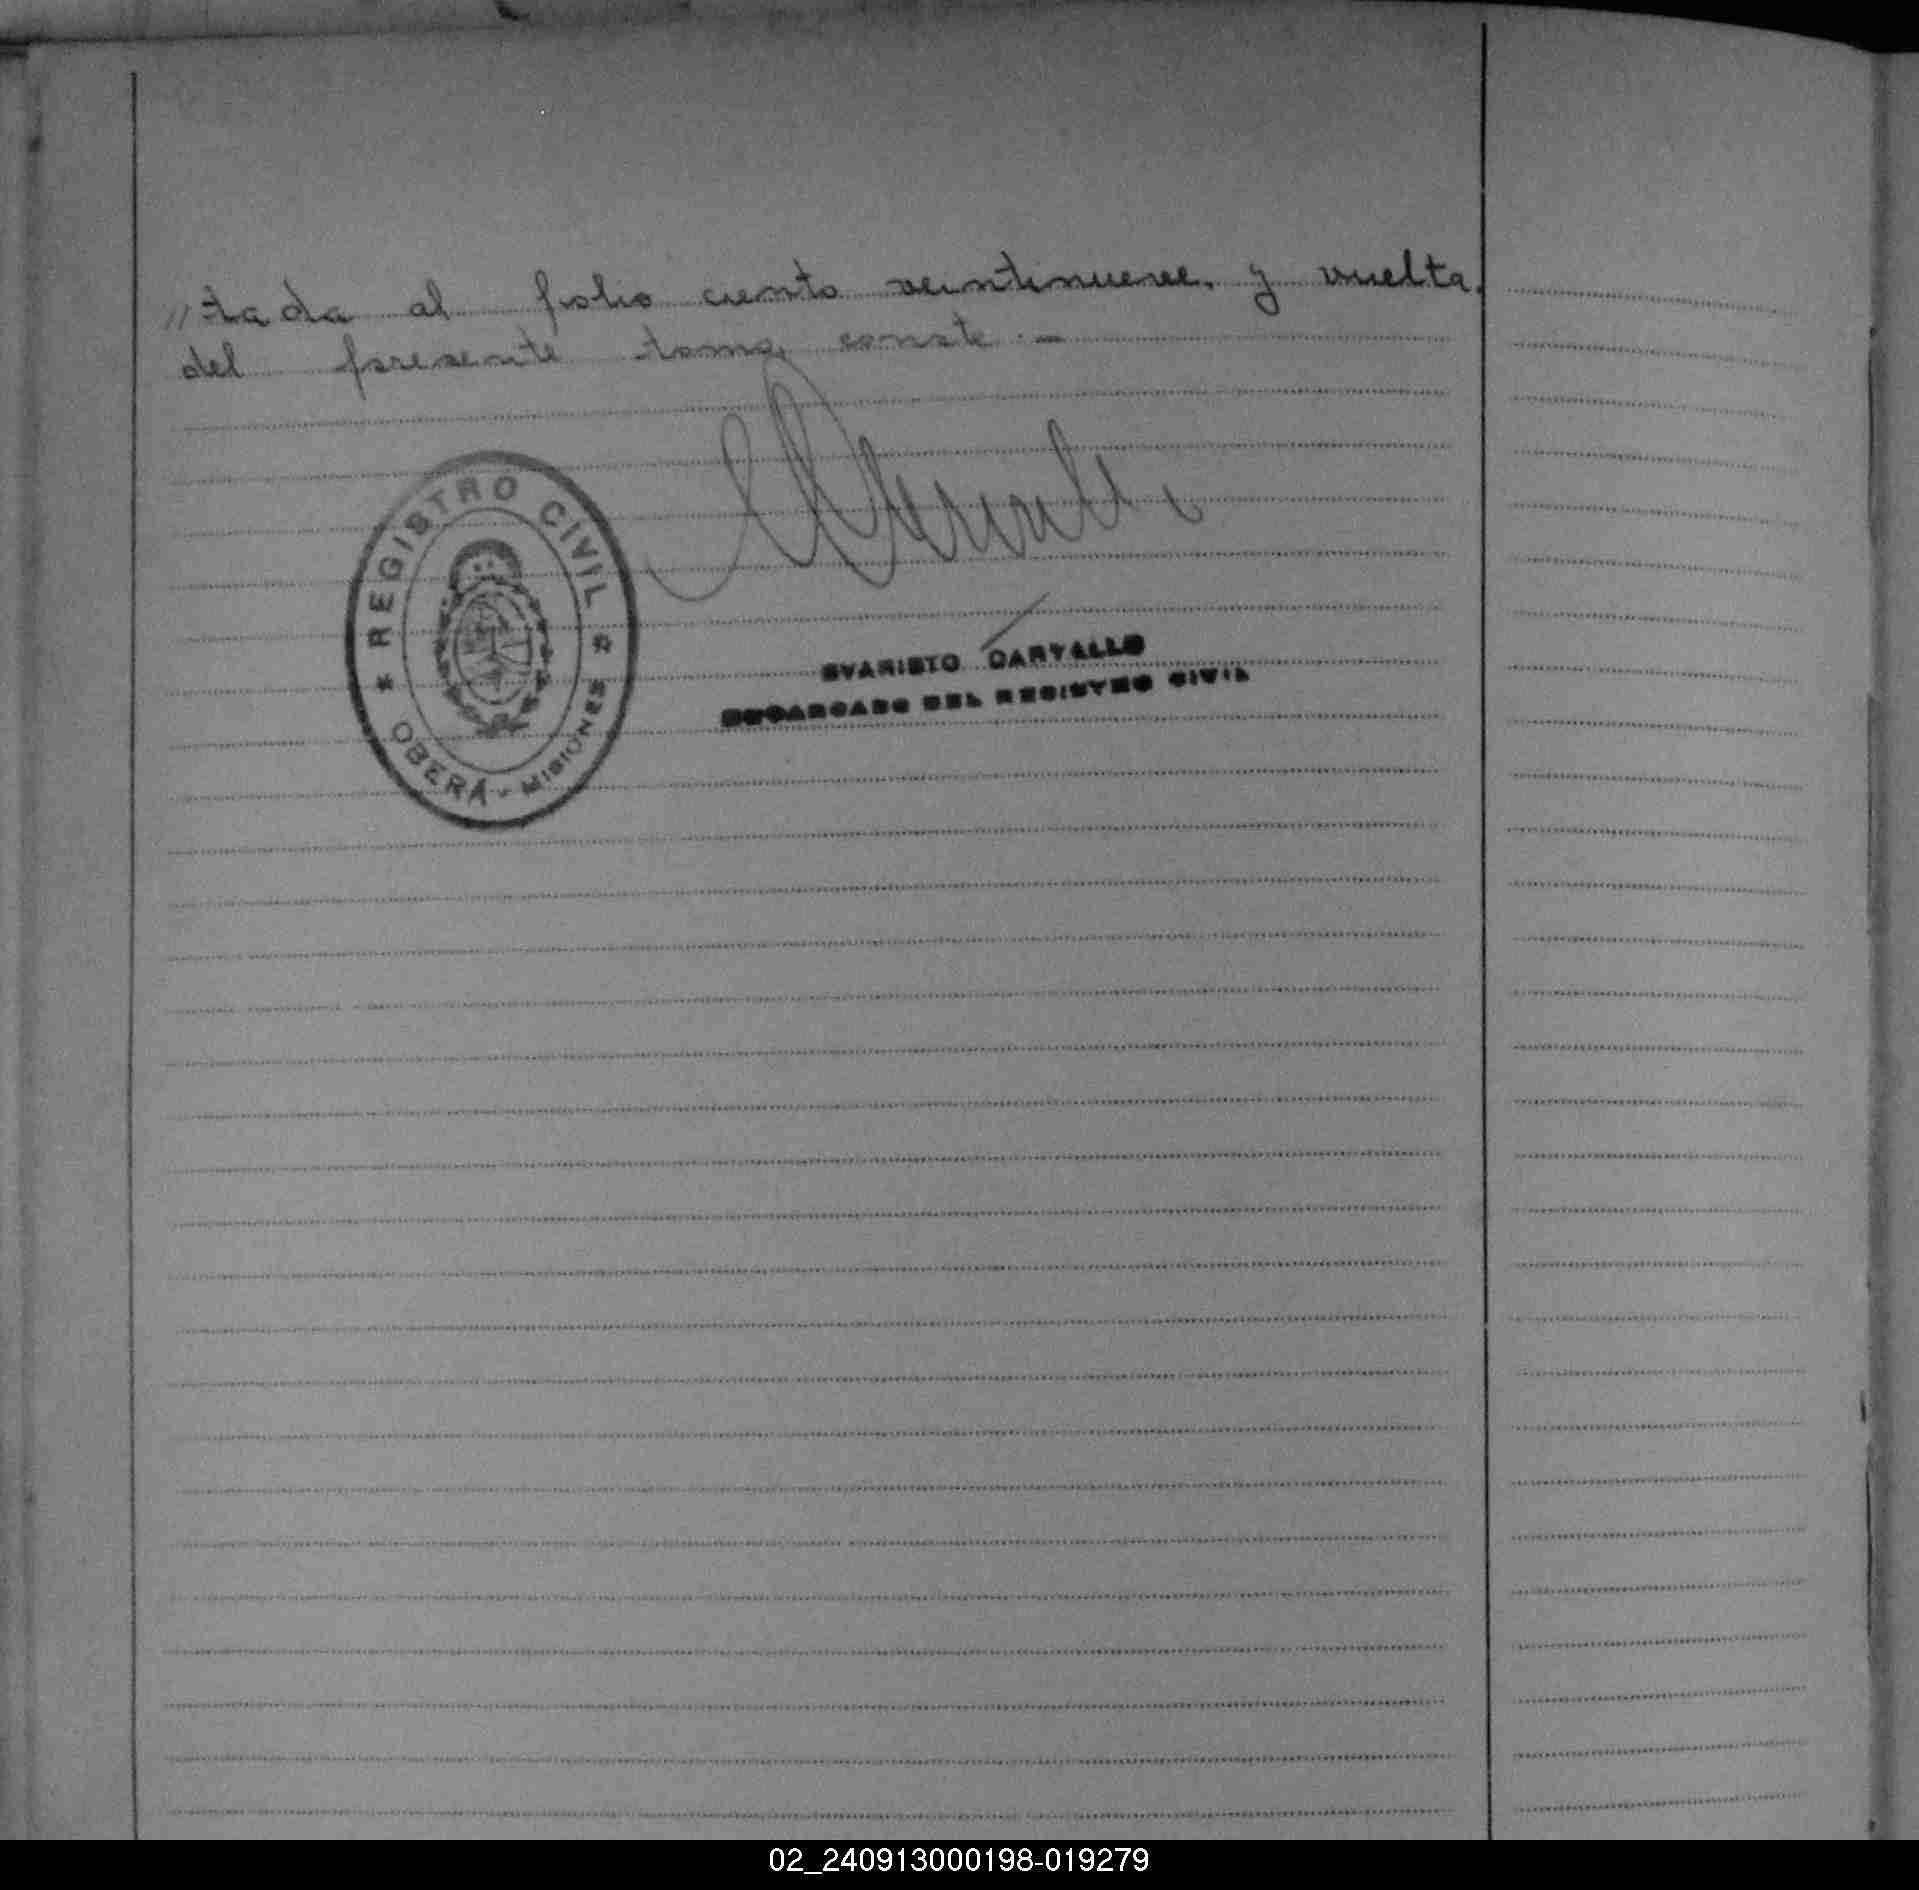 //tada al folio ciento veintinueve, y vuelta.
del presente tomo, conste.-
REGISTRO CIVIL
OBERÁ - MISIONES
EVARISTO CARVALLO
ENCARGADO DEL REGISTRO CIVIL
02_240913000198-019279